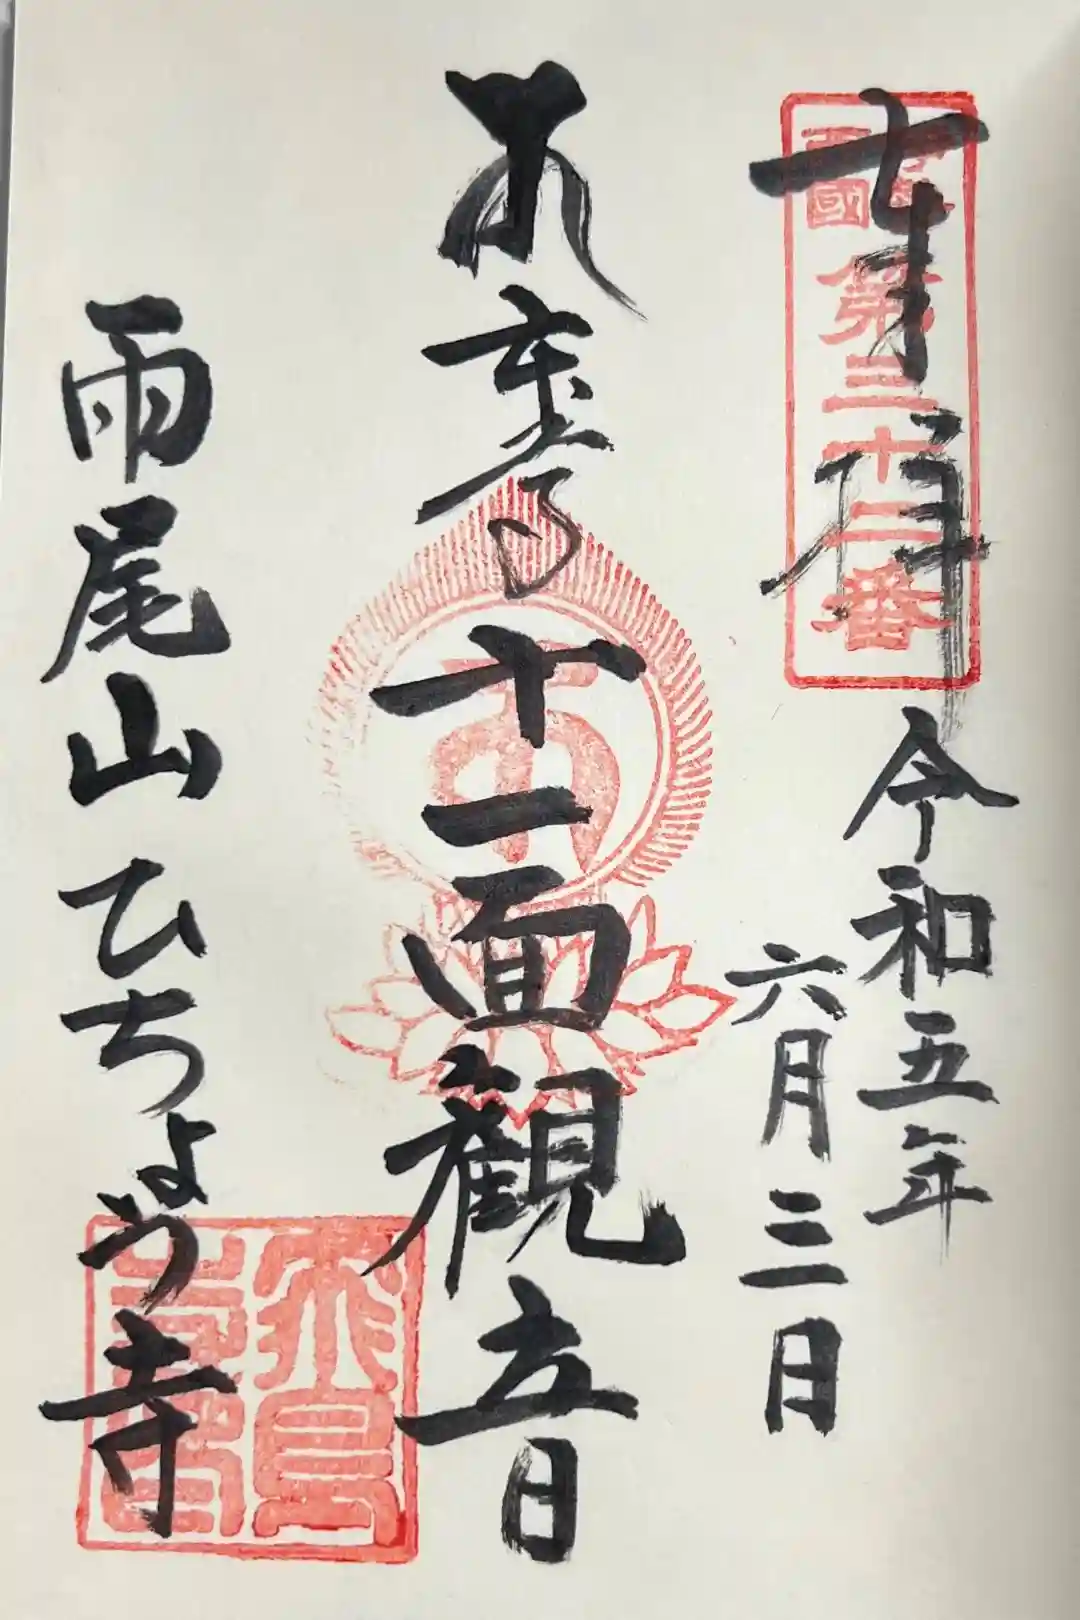 第三十二番
奉拝
令和五年
六月三日
十一面観音
雨尾山ひちょう寺
飛鳥